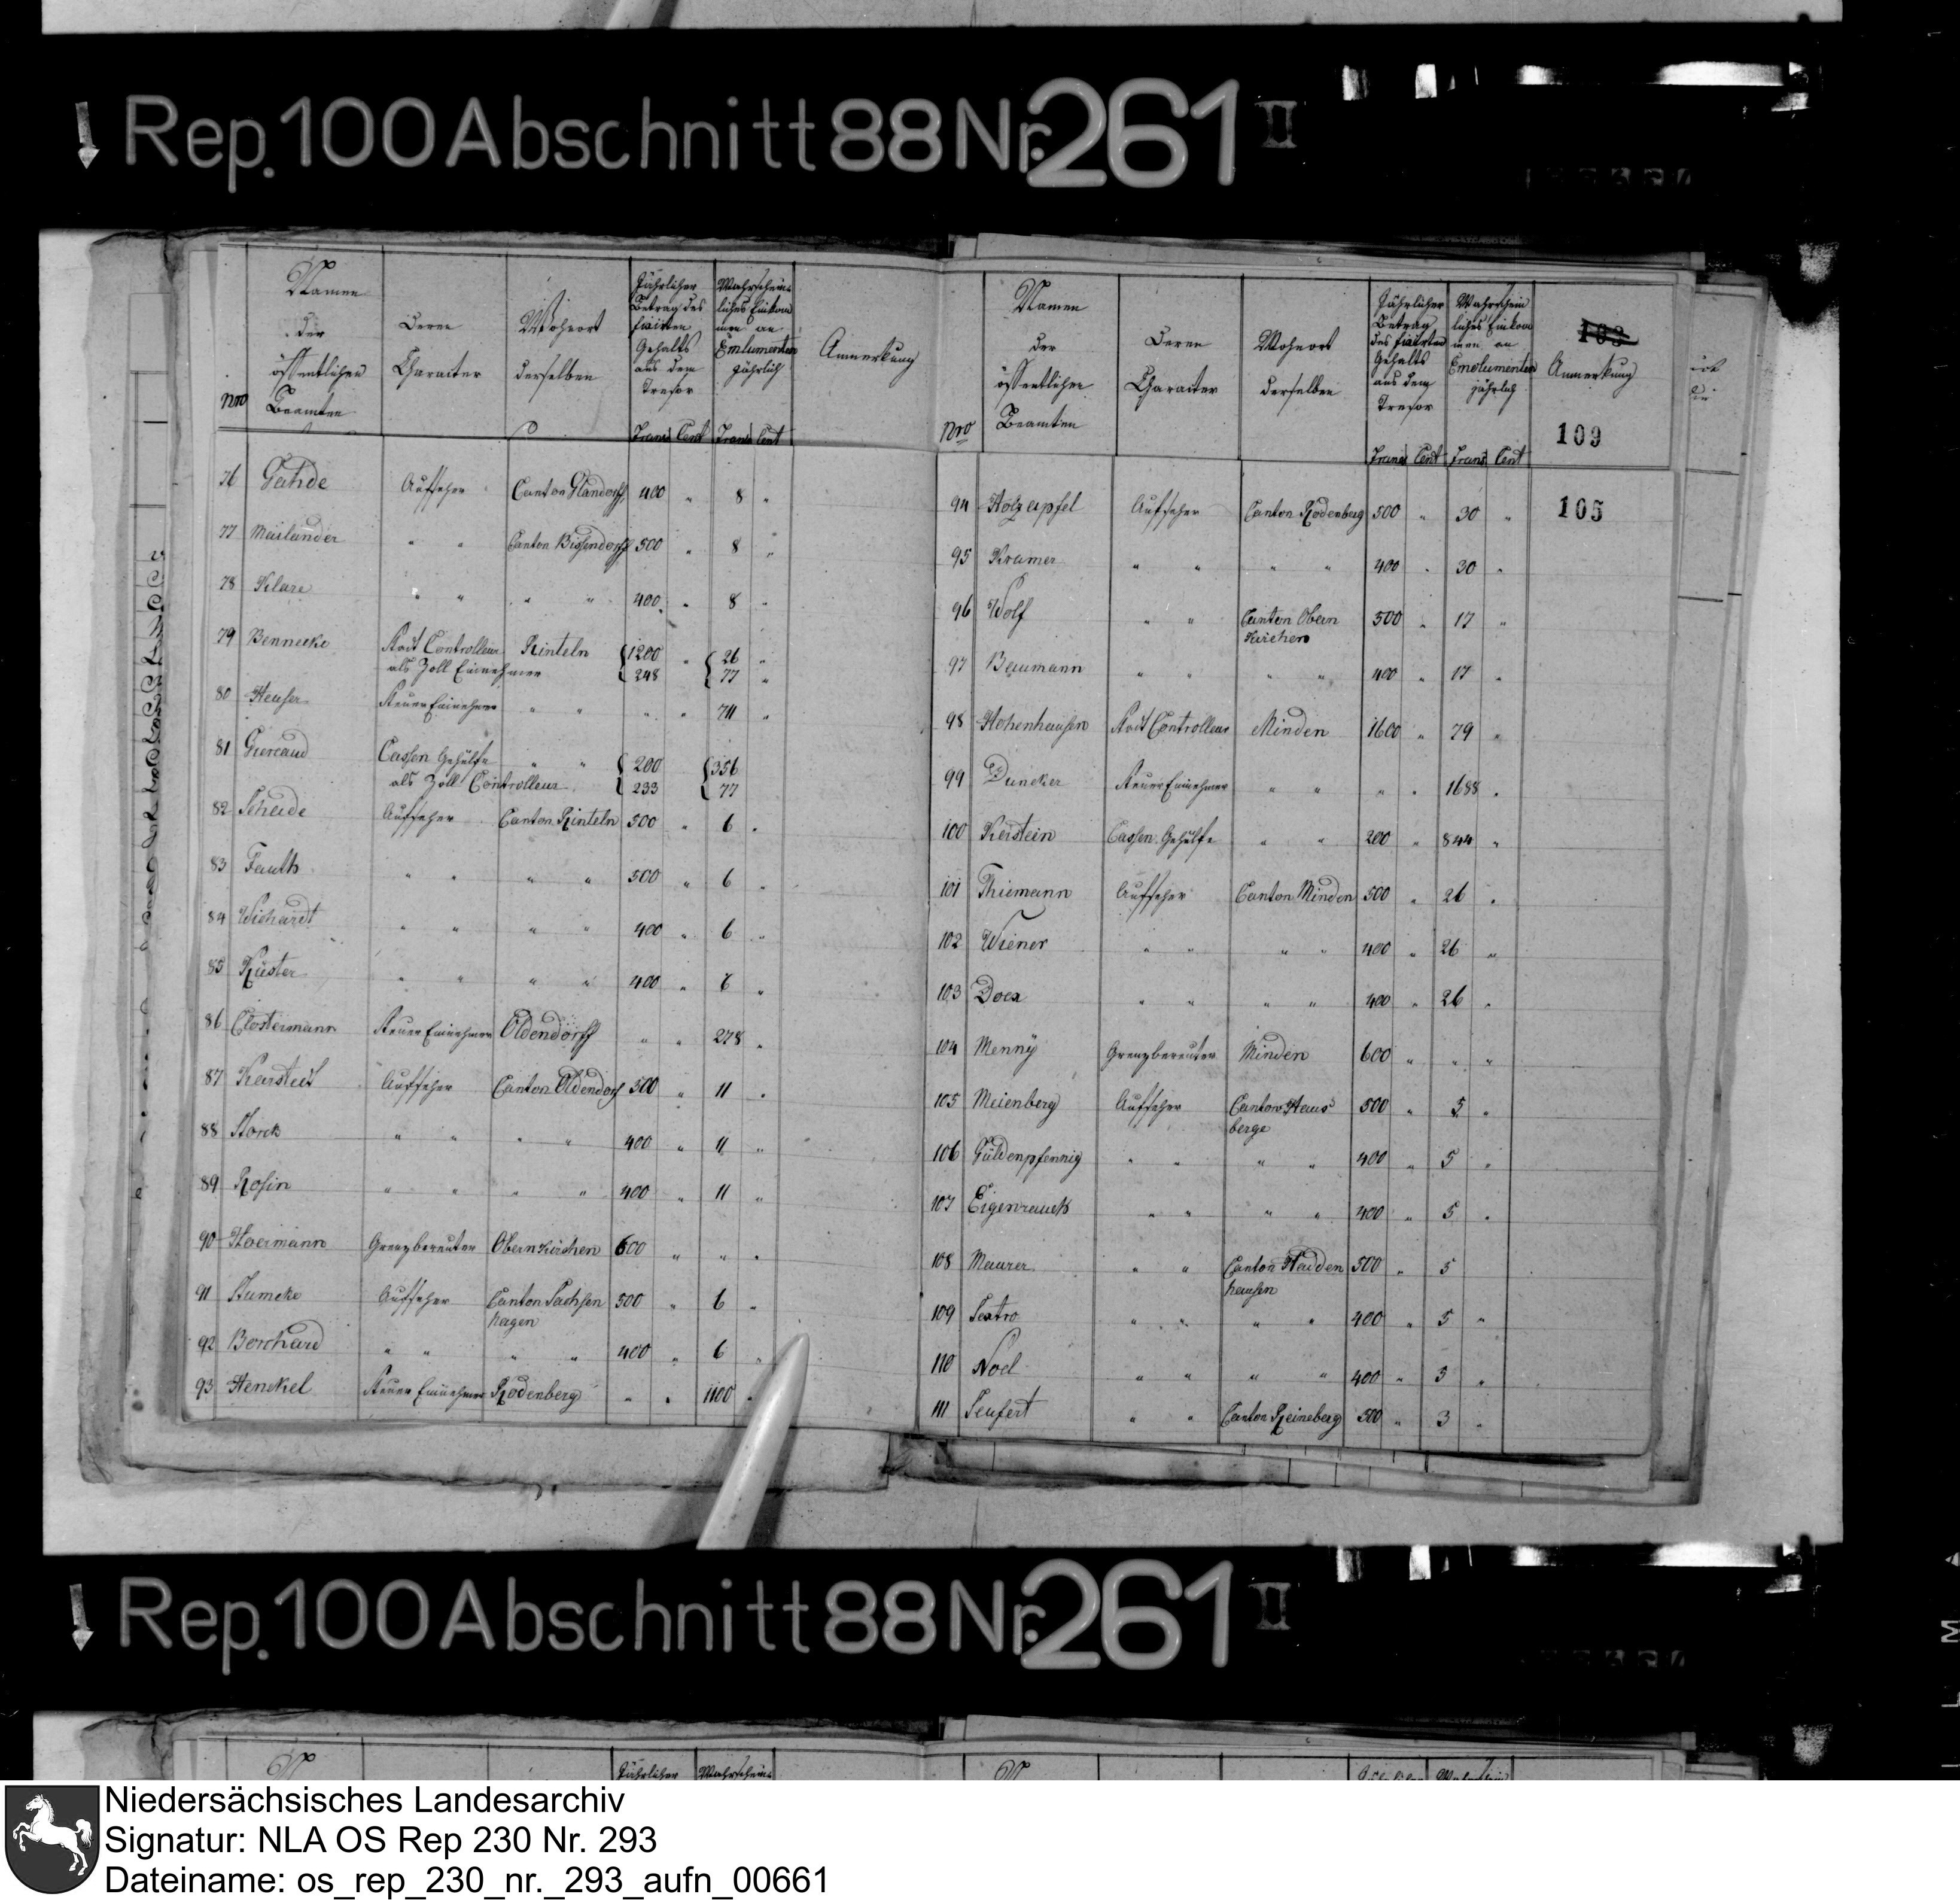 Rep. 100 Abschnitt 88 Nr. 261 II
Nro
Namen der öffentlichen Beamten
Deren Charakter
Wohnort derselben
Jährlicher Betrag des fixirten Gehalts aus dem Tresor
Wahrscheinliches Einkommen an Emolumenten jährlich
Anmerkung
Franc Cent Franc Cent
76 Gahde Aufseher Canton Glandorff 400 " 8 "
77 Mailänder " " Canton Bissendorff 500 " 8 "
78 Klare " " " " 400 " 8 "
79 Bennecke Stadt Controlleur Rinteln 1200 " 26 "
als Zoll Einnehmer 248 77 "
80 Heuser Steuer Einnehmer " " " " 711 "
81 Giereaud Cassen Gehülfe " " 200 356
als Zoll Controlleur 233 77
82 Scheide Aufseher Canton Rinteln 500 " 6 "
83 Fauth " " " " 500 " 6 "
84 Wichardt " " " " 400 " 6 "
85 Küster " " " " 400 " 6 "
86 Clostermann Steuer Einnehmer Oldendorff " " 278 "
87 Karstedt Aufseher Canton Oldendorf 500 " 11 "
88 Storck " " " " 400 " 11 "
89 Rosin " " " " 400 " 11 "
90 Hoermann Grenzbereuter Obernkirchen 600 " " "
91 Stumcke Aufseher Canton Sachsen 500 " 6 "
hagen
92 Borchard " " " " 400 " 6 "
93 Henckel Steuer Einnehmer Rodenberg " " 1100 "
Nro
Namen der öffentlichen Beamten
Deren Charakter
Wohnort derselben
Jährlicher Betrag des fixirten Gehalts aus dem Tresor
Wahrscheinliches Einkommen an Emolumenten jährlich
103
Anmerkung
109
Franc Cent Franc Cent
105
94 Holzapfel Aufseher Canton Rodenberg 500 " 30 "
95 Kramer " " " " 400 " 30 "
96 Wolf " " Canton Obern 500 " 17 "
kirchen
97 Baumann " " " " 400 " 17 "
98 Hohenhausen Stadt Controlleur Minden 1600 " 79 "
99 Duncker Steuer Einnehmer " " " " 1688 "
100 Kerstein Cassen Gehülfe " " 200 " 844 "
101 Thiemann Aufseher Canton Minden 500 " 26 "
102 Wiener " " " " 400 " 26 "
103 Doex " " " " 400 " 26 "
104 Menny Grenzbereuter Minden 600 " " "
105 Meienberg Aufseher Canton Haus 500 " 5 "
berge
106 Güldenpfennig " " " " 400 " 5 "
107 Eigenrauch " " " " 400 " 5 "
108 Maurer " " Canton Hadden 500 " 5
hausen
109 Sextro " " " " 400 " 5 "
110 Noel " " " " 400 " 5 "
111 Seufert " " Canton Reineberg 500 " 3 "
Rep. 100 Abschnitt 88 Nr. 261 II
Jährlicher Wahrschein
Niedersächsisches Landesarchiv
Signatur: NLA OS Rep 230 Nr. 293
Dateiname: os_rep_230_nr._293_aufn_00661